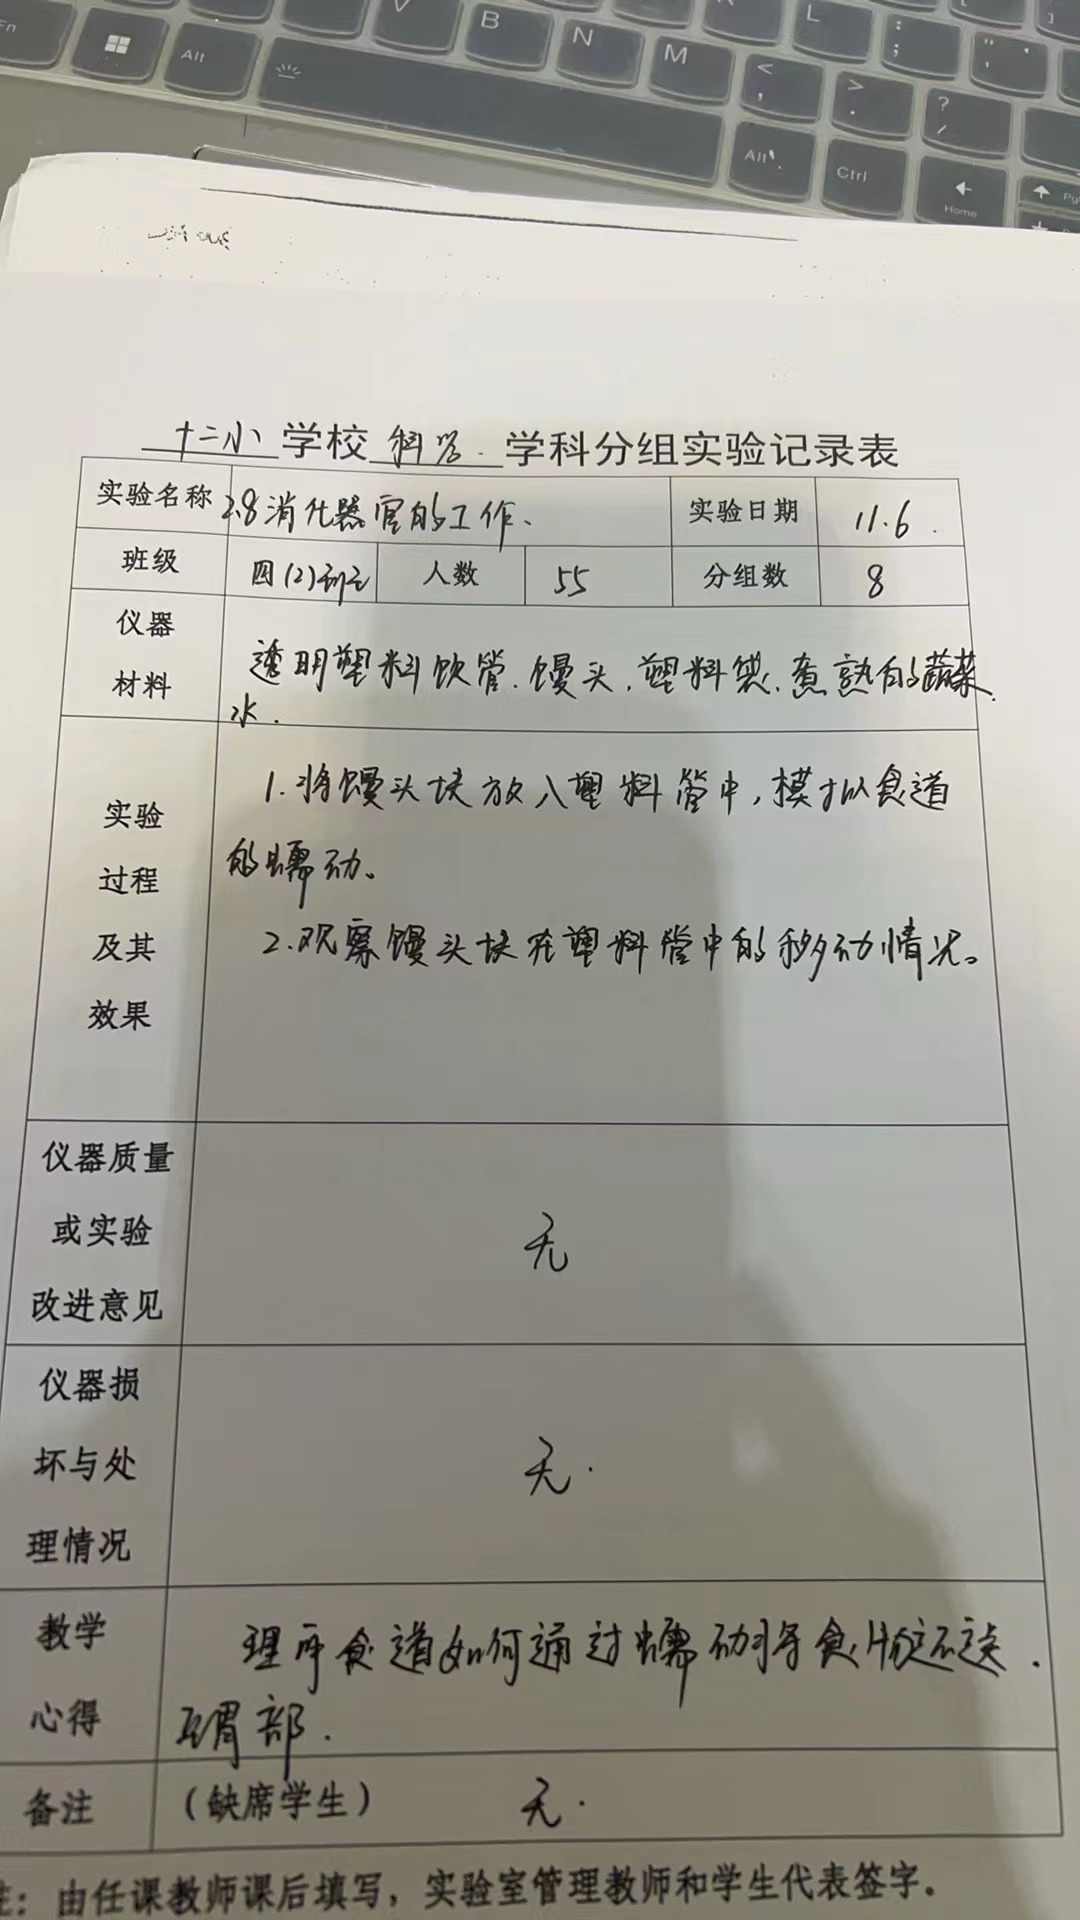 Fn
Alt
V B N M < , > . ? / L : ; " '
Alt Ctrl
Home
十二小学校 科学 学科分组实验记录表
实验名称 2.8消化器官的工作. 实验日期 11.6.
班级 四(2)班 人数 55 分组数 8
仪器
材料
透明塑料饮管.馒头.塑料袋.煮熟的蔬菜.
水.
实验
过程
及其
效果
1.将馒头块放入塑料管中,模拟食道
的蠕动。
2.观察馒头块在塑料管中的移动情况。
仪器质量
或实验
改进意见
无
仪器损
坏与处
理情况
无.
教学
心得
理解食道如何通过蠕动将食物运送
至胃部.
备注 (缺席学生) 无.
注：由任课教师课后填写，实验室管理教师和学生代表签字。